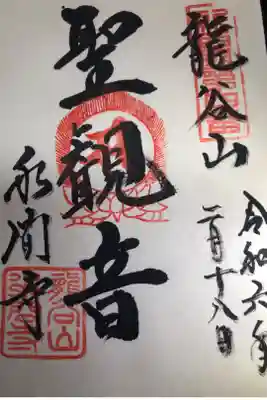 龍谷山
令和六年
二月十八日
聖観音
永間寺